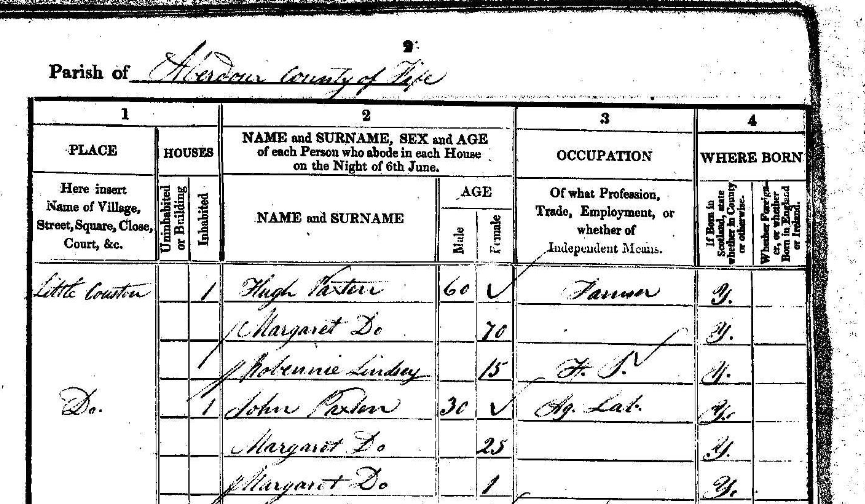 2
Parish of Aberdour County of Fife
1 2 3 4
PLACE HOUSES NAME and SURNAME, SEX and AGE of each Person who abode in each House on the Night of 6th June. OCCUPATION WHERE BORN
Here insert Name of Village, Street, Square, Close, Court, &c.
Uninhabited or Building
Inhabited
NAME and SURNAME
AGE
Male
Female
Of what Profession, Trade, Employment, or whether of Independent Means.
If Born in Scotland, state whether in County or otherwise.
Whether Foreigner, or whether Born in England or Ireland.
Little Couston 1 Hugh Paxton 60 Farmer Y.
Margaret Do 70 Y.
Robennie Lindsey 15 F. S. Y.
Do. 1 John Paxton 30 Ag. Lab. Y.
Margaret Do 25 Y.
Margaret Do 1 Y.